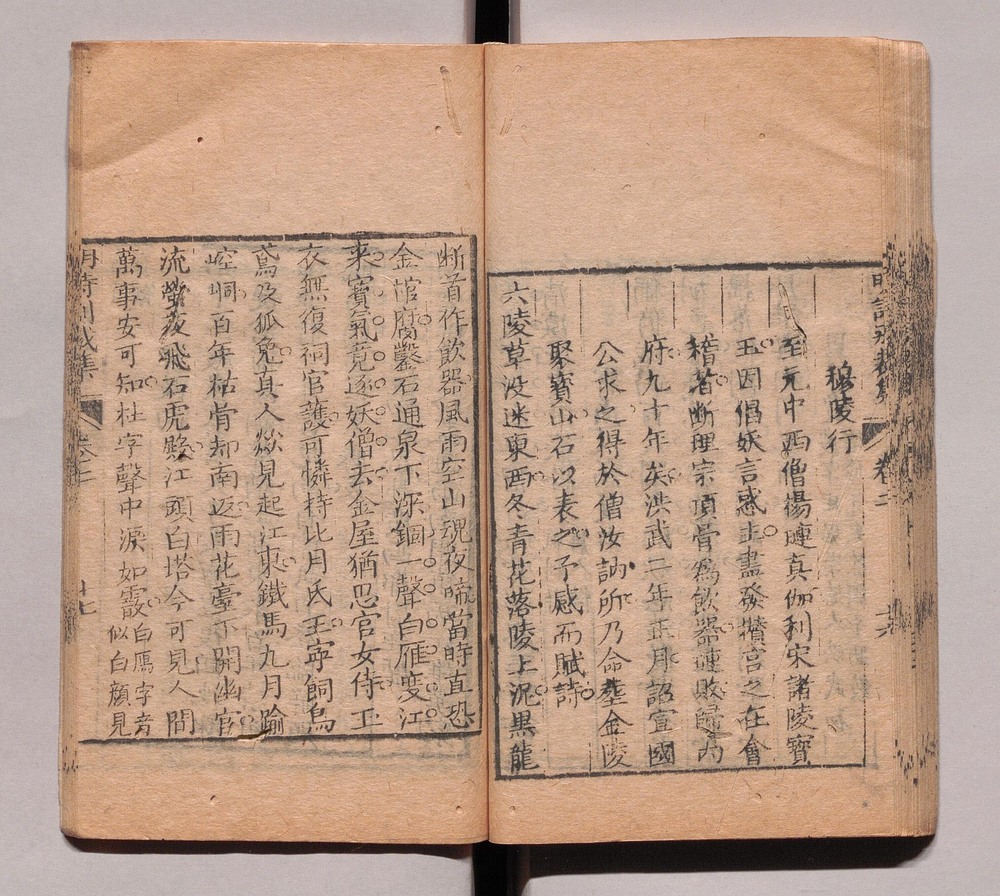 穆陵行
至元中西僧楊璉真伽利宋諸陵寶
玉因倡妖言惑主盡發攢宮之在會
稽者斷理宗頂骨為飲器璉敗歸內
府九十年矣洪武二年正月詔宣國
公求之得於僧汝訥所乃命塟金陵
聚寶山石以表之予感而賦詩
六陵草没迷東西冬青花落陵上泥黒龍
卷二
十六
断首作飲器風雨空山魂夜啼當時直恐
金棺腐鑿石通泉下深錮一聲白雁度江
来寳氣竟逐妖僧去金屋猶思官女侍玉
衣無復祠官護可憐持比月氏王寜飼烏
鳶及狐兔真人欻見起江東鐵馬九月踰
崆峒百年枯骨却南返雨花臺下開幽宫
流螢夜飛石虎殿江頭白塔今可見人間
萬事安可知杜字聲中淚如霰白鴈字音似白顔見
卷二
十七